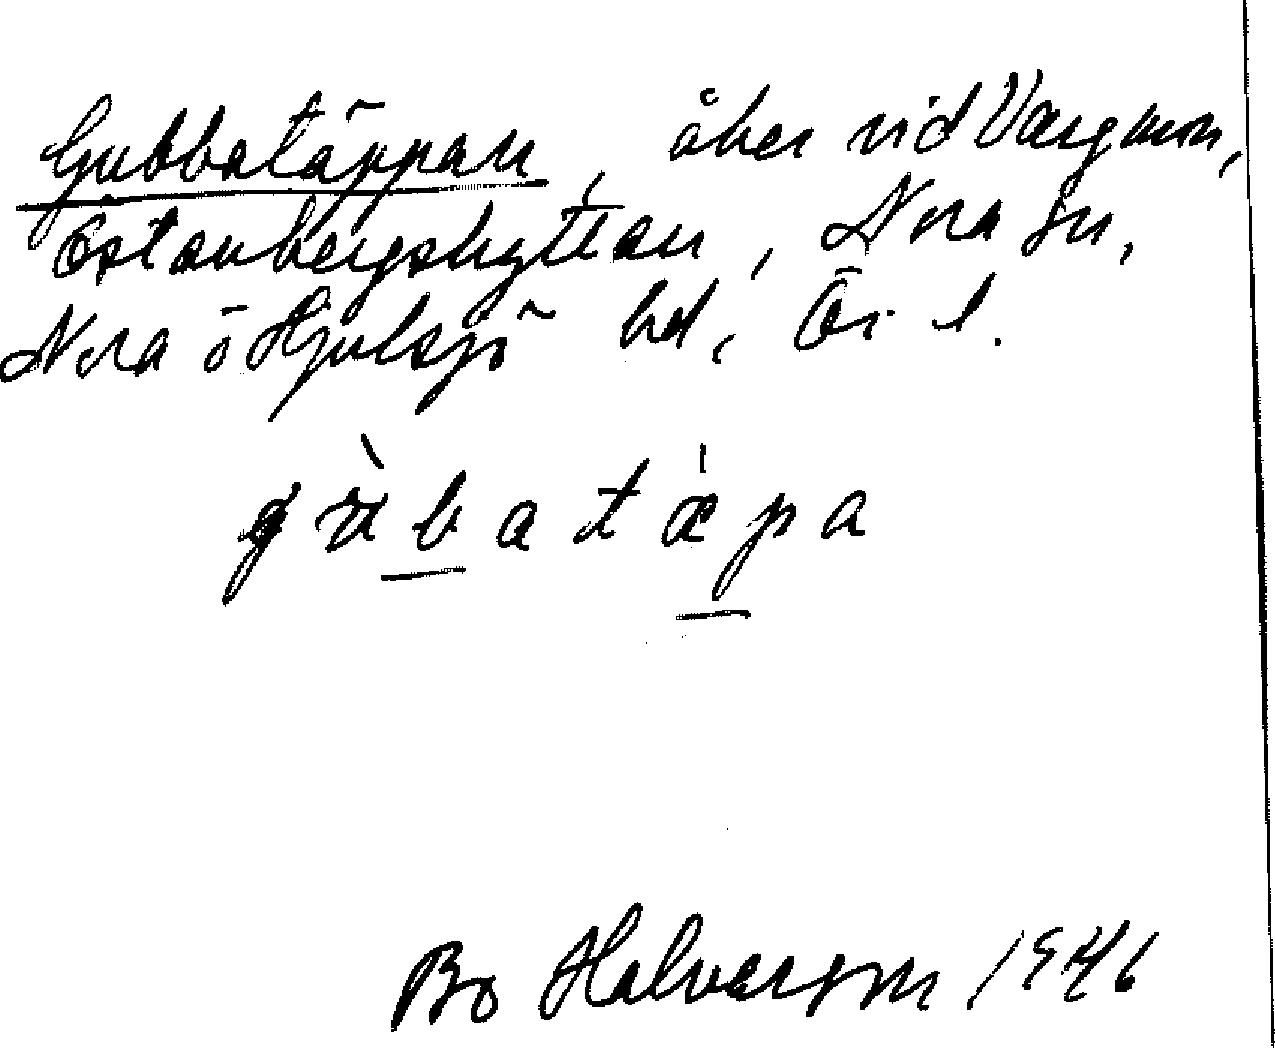 Gubbatäppan, åker vid Vargmon,
Östanbergshyttan, Nora sn,
Nora o Hjulsjö hd, Ör. l.
gùbatǽpa
Bo Halvarson 1946